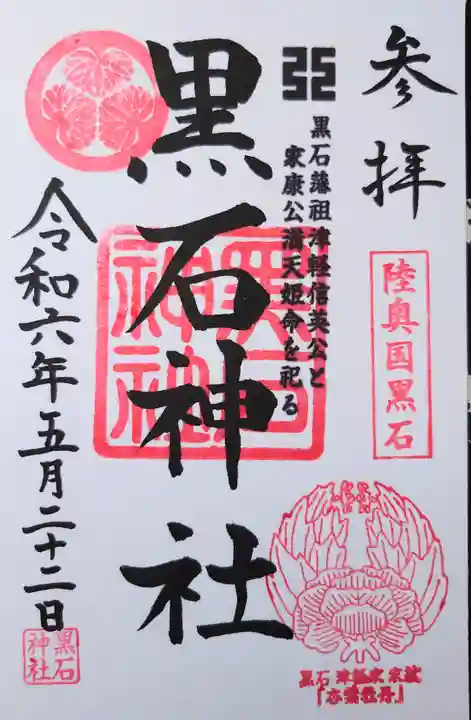 参拝
陸奥国黒石
黒石藩祖津軽信英公と
家康公満天姫命を祀る
黒石神社
黒石
神社
令和六年五月二十二日
黒石
神社
黒石 津軽家 家紋
『杏葉牡丹』